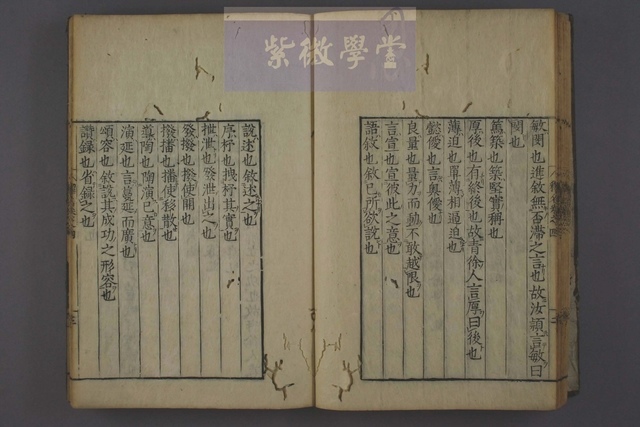 紫微學堂
敏閔也進敘無否滯之言也故汝潁言敏曰
閔也
篤築也築堅實稱也
厚後也有終後也故青徐人言厚曰後也
薄迫也單薄相逼迫也
懿僾也言奧僾也
良量也量力而動不敢越限也
言宣也宣彼此之意也
語敘也敘己所欲說也
說述也敘述之也
序杼也拽杼其實也
拙泄也發泄出之也
發撥也撥使開也
撥播也播使移散也
導陶也陶演己意也
演延也言蔓延而廣也
頌容也敘說其成功之形容也
讚錄也省錄之也